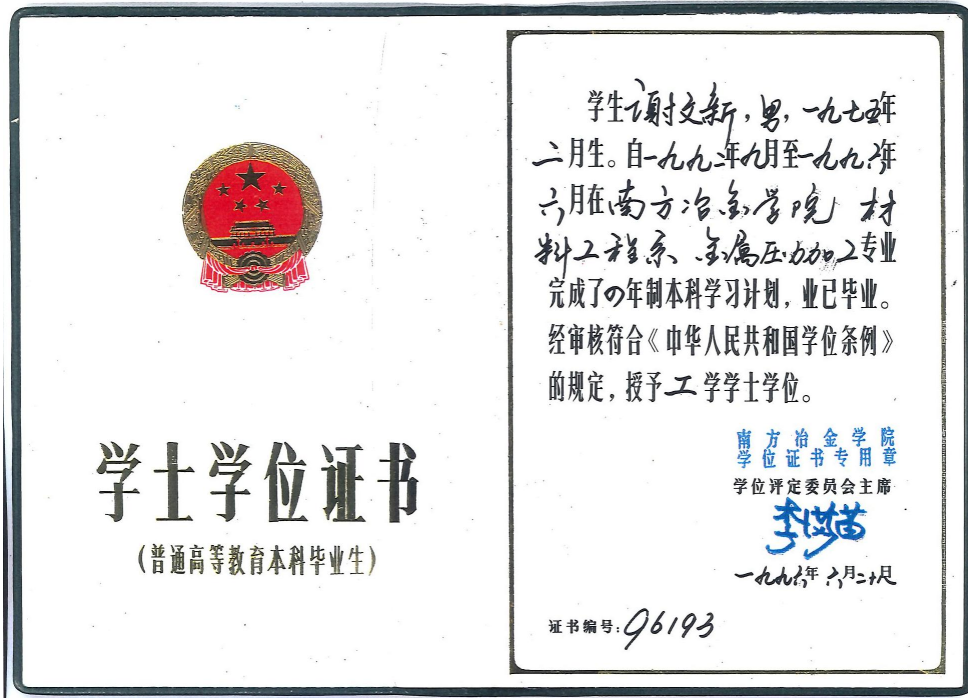 学士学位证书
(普通高等教育本科毕业生)
学生谢文新,男,一九七五年
二月生。自一九九二年九月至一九九六年
六月在南方冶金学院 材
料工程系 金属压力加工专业
完成了四年制本科学习计划,业已毕业。
经审核符合《中华人民共和国学位条例》
的规定,授予工学学士学位。
南方冶金学院
学位证书专用章
学位评定委员会主席
一九九六年六月二十日
证书编号:96193